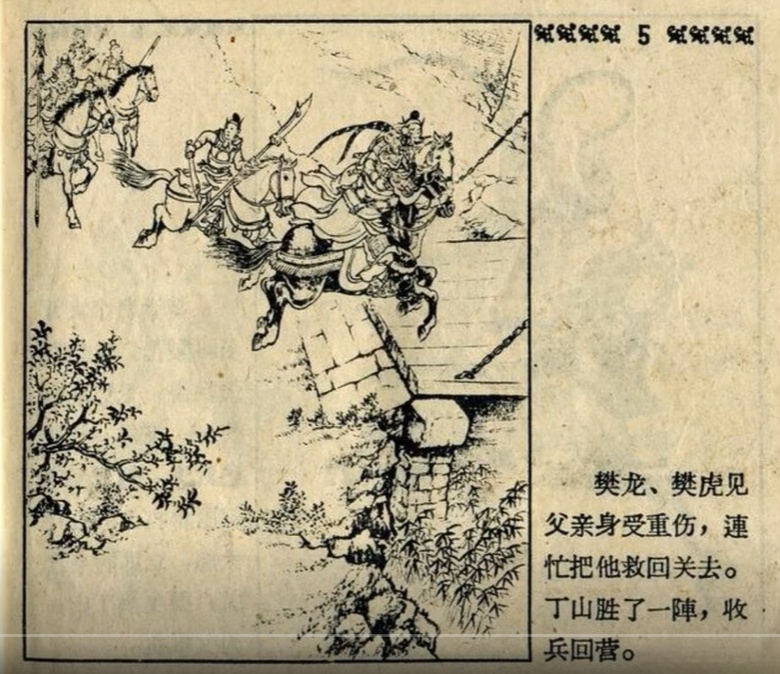 5
樊龙、樊虎见
父亲身受重伤，連
忙把他救回关去。
丁山胜了一陣，收
兵回营。